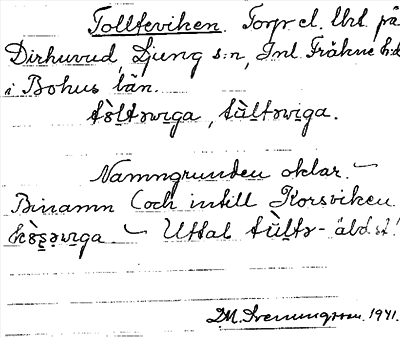 Tollteviken. Torp el. lht. på
Dirhuvud, Ljung s:n, Inl. Fräkne h:d
i Bohus län.
tòḷtəviga, tùḷtəviga.
Namngrunden oklar. –
Binamn (och intill Korsviken
kòṣəviga – Uttal tùḷtə- äldst!
DM. 1941.